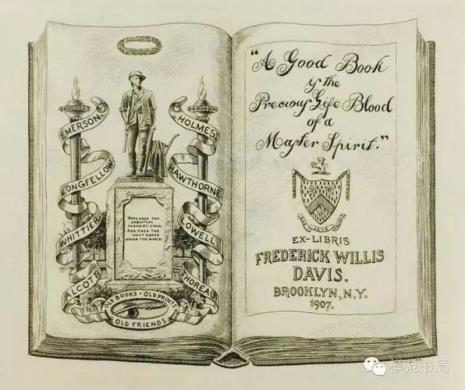 EMERSON.
HOLMES.
LONGFELLOW
HAWTHORNE.
WHITTIER
LOWELL
ALCOTT
THOREAU.
HERE ONCE THE
EMBATTLED
FARMERS STOOD,
AND FIRED THE
SHOT HEARD
ROUND THE WORLD.
OLD BOOKS • OLD PRINTS
OLD FRIENDS
"A Good Book
y the
Precious Life Blood
of a
Master Spirit."
EX-LIBRIS
FREDERICK WILLIS
DAVIS.
BROOKLYN, N.Y.
1907.